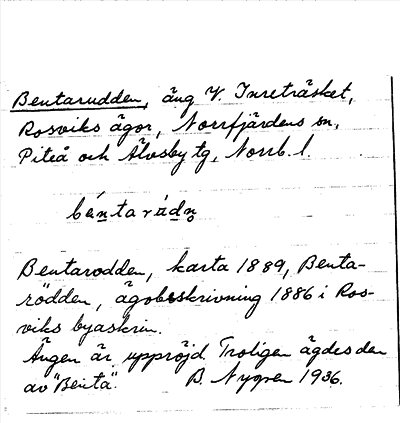 Bentarudden, äng V. Inreträsket,
Rosviks ägor, Norrfjärdens sn,
Piteå och Älvsby tg, Norrb. l.
béntaràdn̥
Bentarodden, karta 1889, Benta-
rödden, ägobeskrivning 1886 i Ros-
viks byaskrin.
Ängen är uppröjd. Troligen ägdes den
av "Benta". B. Nygren 1936.